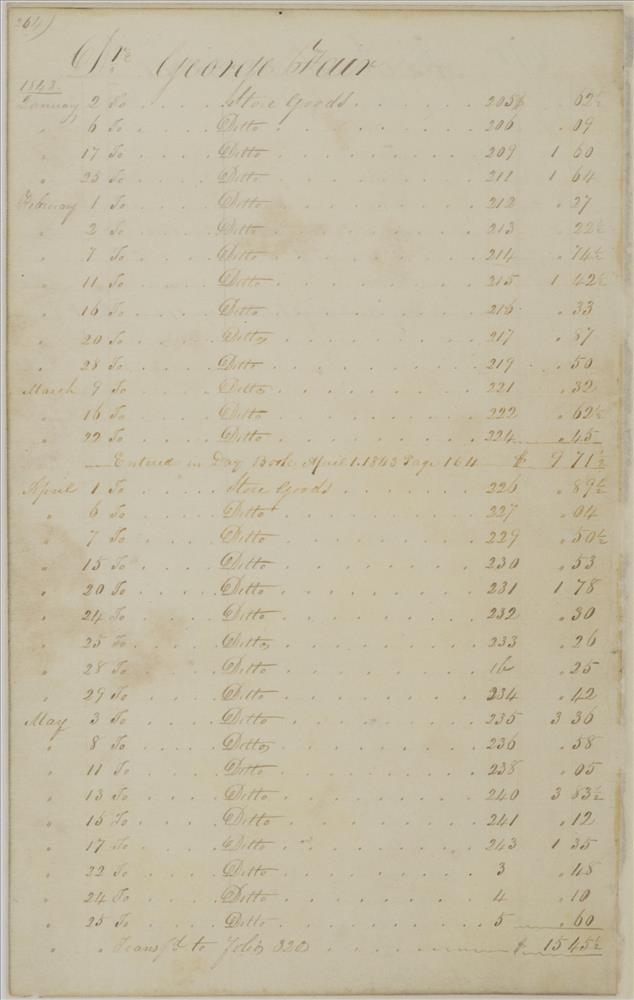 264)
Dr. George Fair
1843.
January 2 To . . . . Store Goods . . . . . . 205 $ . 62½
" 6 To . . . . Ditto . . . . . . 206 . 09
" 17 To . . . . Ditto . . . . . . 209 1 60
" 25 To . . . . Ditto . . . . . . 211 1 64
February 1 To . . . . Ditto . . . . . . 212 . 27
" 2 To . . . . Ditto . . . . . . 213 . 22½
" 7 To . . . . Ditto . . . . . . 214 . 74½
" 11 To . . . . Ditto . . . . . . 215 1 42½
" 16 To . . . . Ditto . . . . . . 216 . 33
" 20 To . . . . Ditto . . . . . . 217 . 87
" 28 To . . . . Ditto . . . . . . 219 . 50
March 9 To . . . . Ditto . . . . . . 221 . 32
" 16 To . . . . Ditto . . . . . . 222 . 62½
" 22 To . . . . Ditto . . . . . . 224 . 45
Entered in Day Book April 1. 1843 Page 164 $ 9 71½
April 1 To . . . . Store Goods . . . . . . 226 . 89½
" 6 To . . . . Ditto . . . . . . 227 . 04
" 7 To . . . . Ditto . . . . . . 229 . 50½
" 15 To . . . . Ditto . . . . . . 230 . 53
" 20 To . . . . Ditto . . . . . . 231 1 78
" 24 To . . . . Ditto . . . . . . 232 . 30
" 25 To . . . . Ditto . . . . . . 233 . 26
" 28 To . . . . Ditto . . . . . . ib . 25
" 29 To . . . . Ditto . . . . . . 234 . 42
May 3 To . . . . Ditto . . . . . . 235 3 36
" 8 To . . . . Ditto . . . . . . 236 . 58
" 11 To . . . . Ditto . . . . . . 238 . 05
" 13 To . . . . Ditto . . . . . . 240 3 83½
" 15 To . . . . Ditto . . . . . . 241 . 12
" 17 To . . . . Ditto . . . . . . 243 1 35
" 22 To . . . . Ditto . . . . . . 3 . 48
" 24 To . . . . Ditto . . . . . . 4 . 10
" 25 To . . . . Ditto . . . . . . 5 . 60
" " Transfd to Folio 320 . . . . . . $ 15 45½